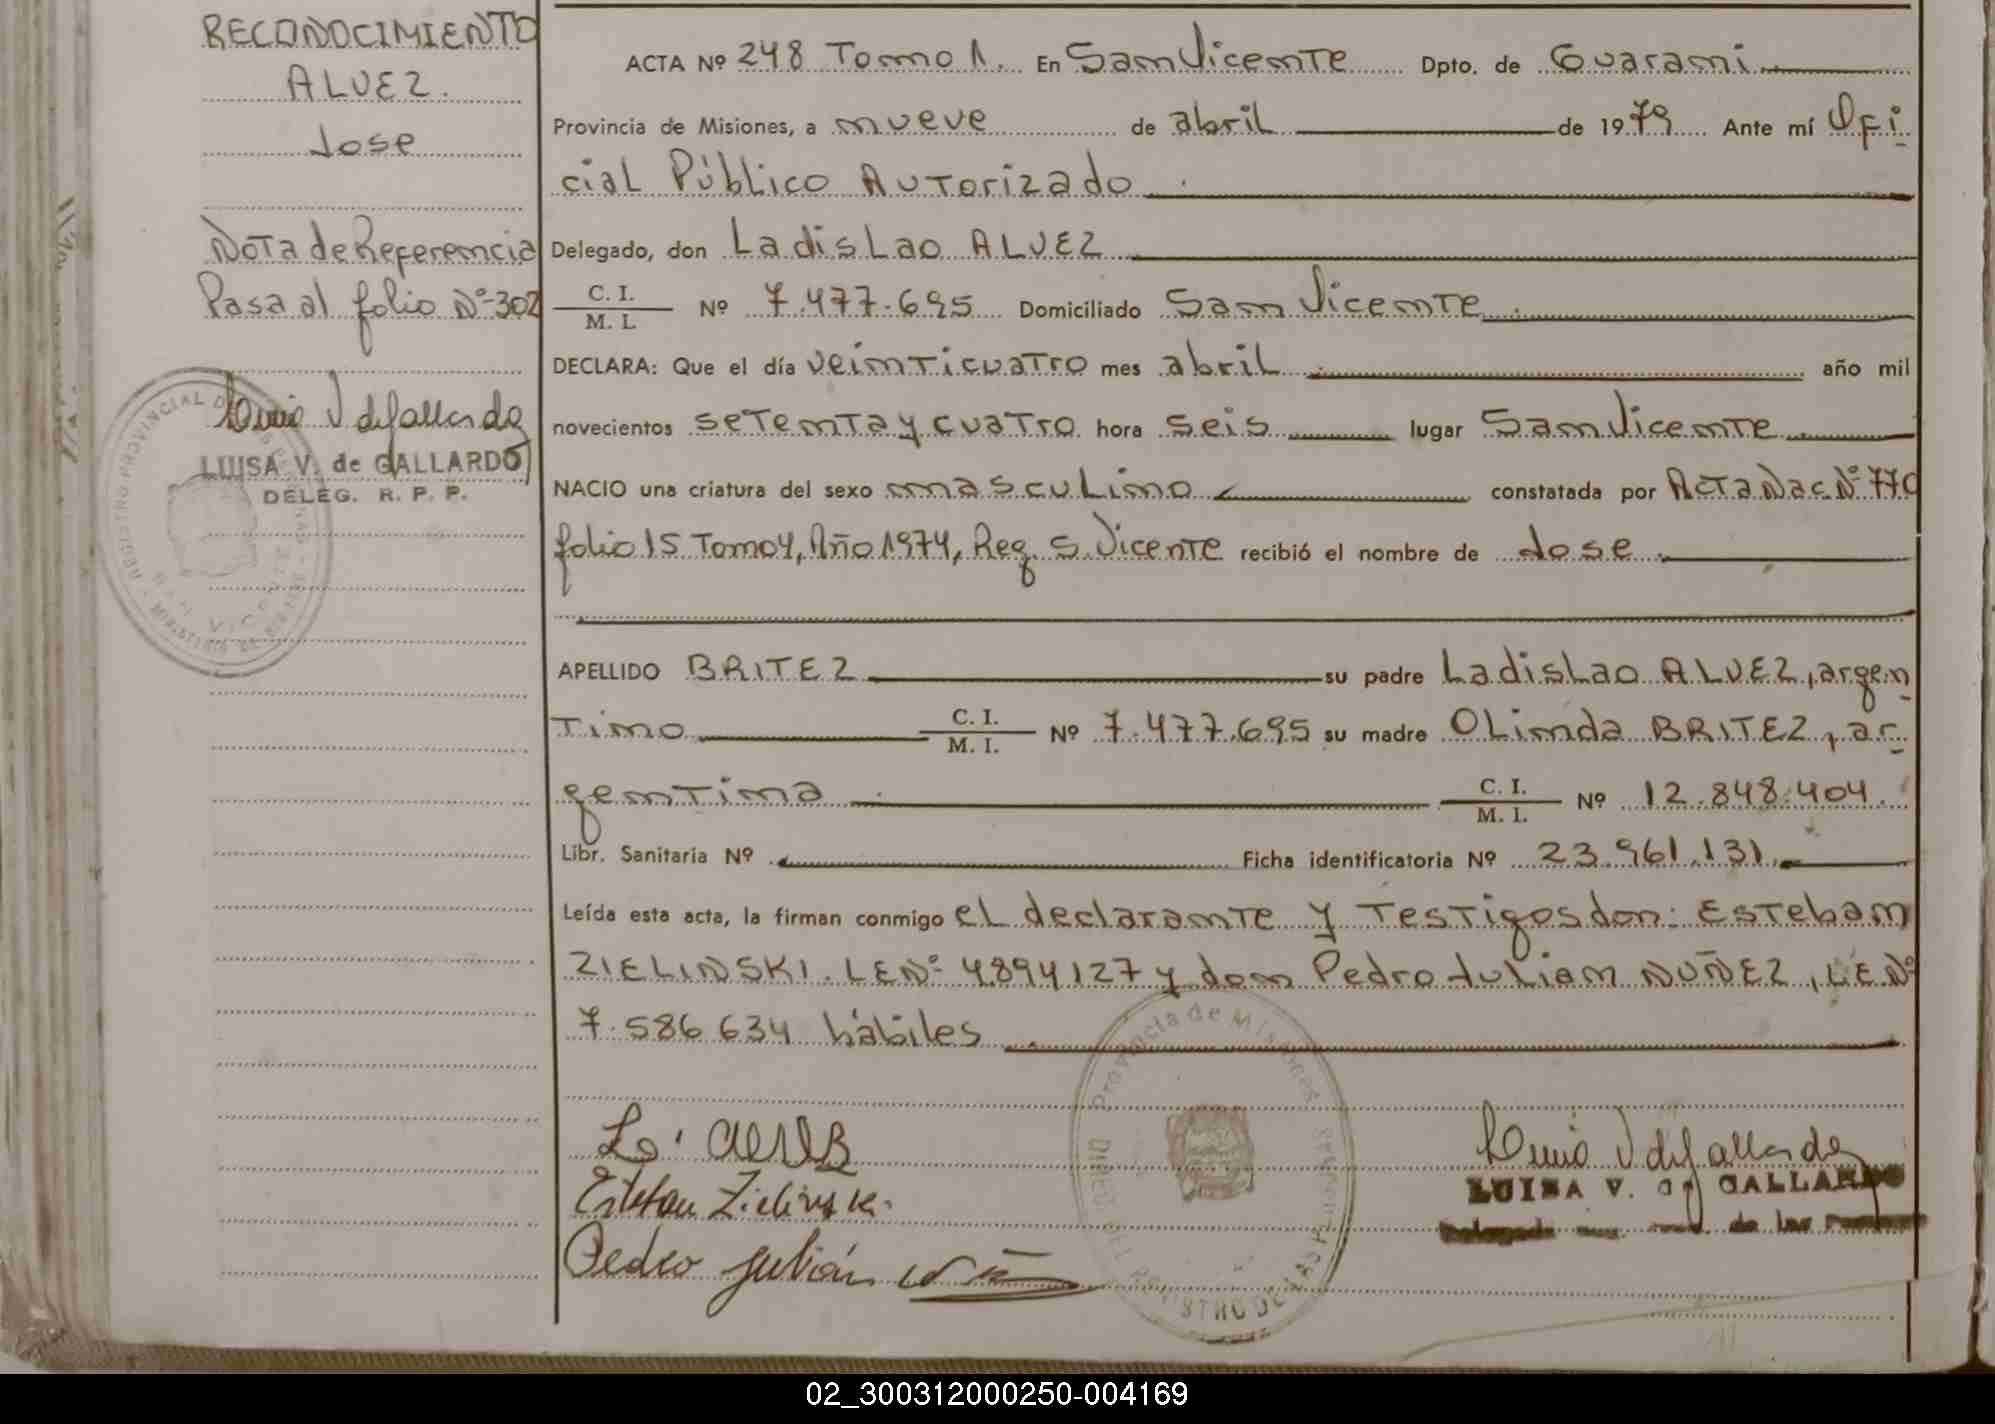 RECONOCIMIENTO
ALVEZ.
Jose
Nota de Referencia
Pasa al folio Nº 302
LUISA V. de GALLARDO
DELEG. R. P. P.
ACTA Nº 248 Tomo 1. En San Vicente Dpto. de Guarani
Provincia de Misiones, a nueve de abril de 1979 Ante mí Ofi
cial Público Autorizado
Delegado, don Ladislao ALVEZ
C. I.
M. I. Nº 7.477.695 Domiciliado San Vicente
DECLARA: Que el día veinticuatro mes abril año mil
novecientos setenta y cuatro hora seis lugar San Vicente
NACIO una criatura del sexo masculino constatada por Acta Nac. Nº 770
folio 15 Tomo 4, Año 1974, Reg. S. Vicente recibió el nombre de Jose
APELLIDO BRITEZ su padre Ladislao ALVEZ, argen
tino C. I.
M. I. Nº 7.477.695 su madre Olinda BRITEZ, ar
gentina C. I.
M. I. Nº 12.848.404.
Libr. Sanitaria Nº Ficha identificatoria Nº 23.961.131
Leída esta acta, la firman conmigo el declarante y testigos don: Esteban
ZIELINSKI. LE Nº 4894127 y don Pedro Julian NUÑEZ, L.E. Nº
7.586.634 hábiles
Provincia de Misiones
Esteban Zielinski
Pedro Julián
LUISA V. de GALLARDO
02_300312000250-004169